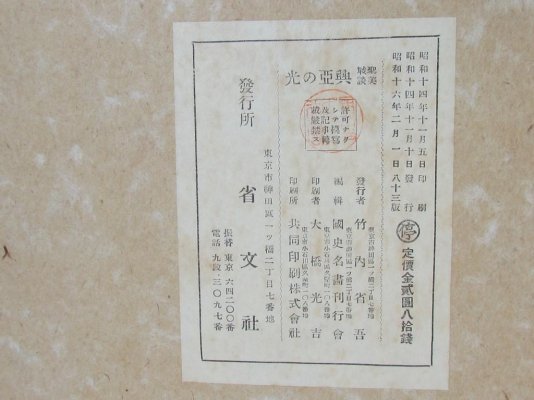 昭和十四年十一月五日印刷
昭和十四年十一月十日發行
昭和十六年二月一日八十三版
停 定價金貳圓八拾錢
聖戰美談 興亞の光
許可ナクシテ模寫及記事轉載嚴禁ス
東京市神田區一ツ橋二丁目七番地
發行者 竹內省吾
東京市神田區一ツ橋二丁目七番地
編輯 國史名畫刊行會
東京市小石川區久堅町一〇八番地
印刷者 大橋光吉
東京市小石川區久堅町一〇八番地
印刷所 共同印刷株式會社
東京市神田區一ツ橋二丁目七番地
發行所 省文社
振替 東京 六四二〇〇番
電話 九段・三〇九七番